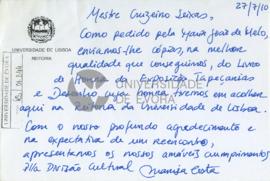 27/7/10
Mestre Cruzeiro Seixas,
Como pedido pela Maria João de Melo,
enviamos-lhe cópias, na melhor
qualidade que conseguimos, do Livro
de Honra da Exposição Tapeçarias
e Desenho que honra tivemos em acolher
aqui na Reitoria da Universidade de Lisboa.
Com o nosso profundo agradecimento e
na expectativa de um reencontro,
apresentamos os nossos amáveis cumprimentos
Divisão Cultural
UNIVERSIDADE DE LISBOA
REITORIA
UNIVERSIDADE
DE ÉVORA